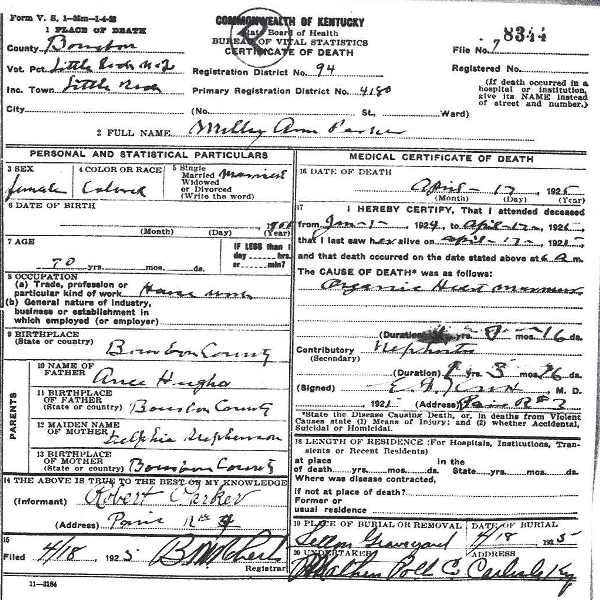 Form V. S. 1-35m-1-4-23
COMMONWEALTH OF KENTUCKY
State Board of Health
BUREAU OF VITAL STATISTICS
CERTIFICATE OF DEATH
File No. 8344
1 PLACE OF DEATH
County Bourbon
Vot. Pct. Little Rock No 2
Registration District No. 94
Registered No.
Inc. Town Little Rock
Primary Registration District No. 4180
(If death occurred in a hospital or institution, give its NAME instead of street and number.)
City (No. St., Ward)
2 FULL NAME Milley Ann Parker
PERSONAL AND STATISTICAL PARTICULARS
3 SEX female
4 COLOR OR RACE Colored
5 Single
Married Married
Widowed
or Divorced
(Write the word)
6 DATE OF BIRTH
(Month) (Day) (Year)
7 AGE
70 yrs. mos. ds.
IF LESS than 1
day hrs.
or min.?
8 OCCUPATION
(a) Trade, profession or
particular kind of work House work
(b) General nature of industry,
business or establishment in
which employed (or employer)
9 BIRTHPLACE
(State or country)
Bourbon County
PARENTS
10 NAME OF
FATHER
Hughs
11 BIRTHPLACE
OF FATHER
(State or country) Bourbon County
12 MAIDEN NAME
OF MOTHER
13 BIRTHPLACE
OF MOTHER
(State or country) Bourbon County
14 THE ABOVE IS TRUE TO THE BEST OF MY KNOWLEDGE
(Informant) Robert Parker
(Address) Paris
15
Filed 4/18 1925
Registrar
11-3184
MEDICAL CERTIFICATE OF DEATH
16 DATE OF DEATH
April - 17, 1925
(Month) (Day) (Year)
17 I HEREBY CERTIFY, That I attended deceased
from Jan-1- 1924, to April-17- 1925
that I last saw her alive on April-17- 1925
and that death occurred on the date stated above at 6 a m.
The CAUSE OF DEATH* was as follows:
Organic Heart
(Duration) yrs. mos. 16 ds.
Contributory
(Secondary)
(Duration) 1 yrs. 3 mos. 16 ds.
(Signed) M. D.
, 192 (Address) Paris R#3
*State the Disease Causing Death, or, in deaths from Violent
Causes state (1) Means of Injury; and (2) whether Accidental,
Suicidal or Homicidal.
18 LENGTH OF RESIDENCE (For Hospitals, Institutions, Transients
or Recent Residents)
at place in the
of death yrs. mos. ds. State yrs. mos. ds.
Where was disease contracted,
if not at place of death?
Former or
usual residence
19 PLACE OF BURIAL OR REMOVAL DATE OF BURIAL
Graveyard 4/18 1925
20 UNDERTAKER ADDRESS
Carlisle Ky